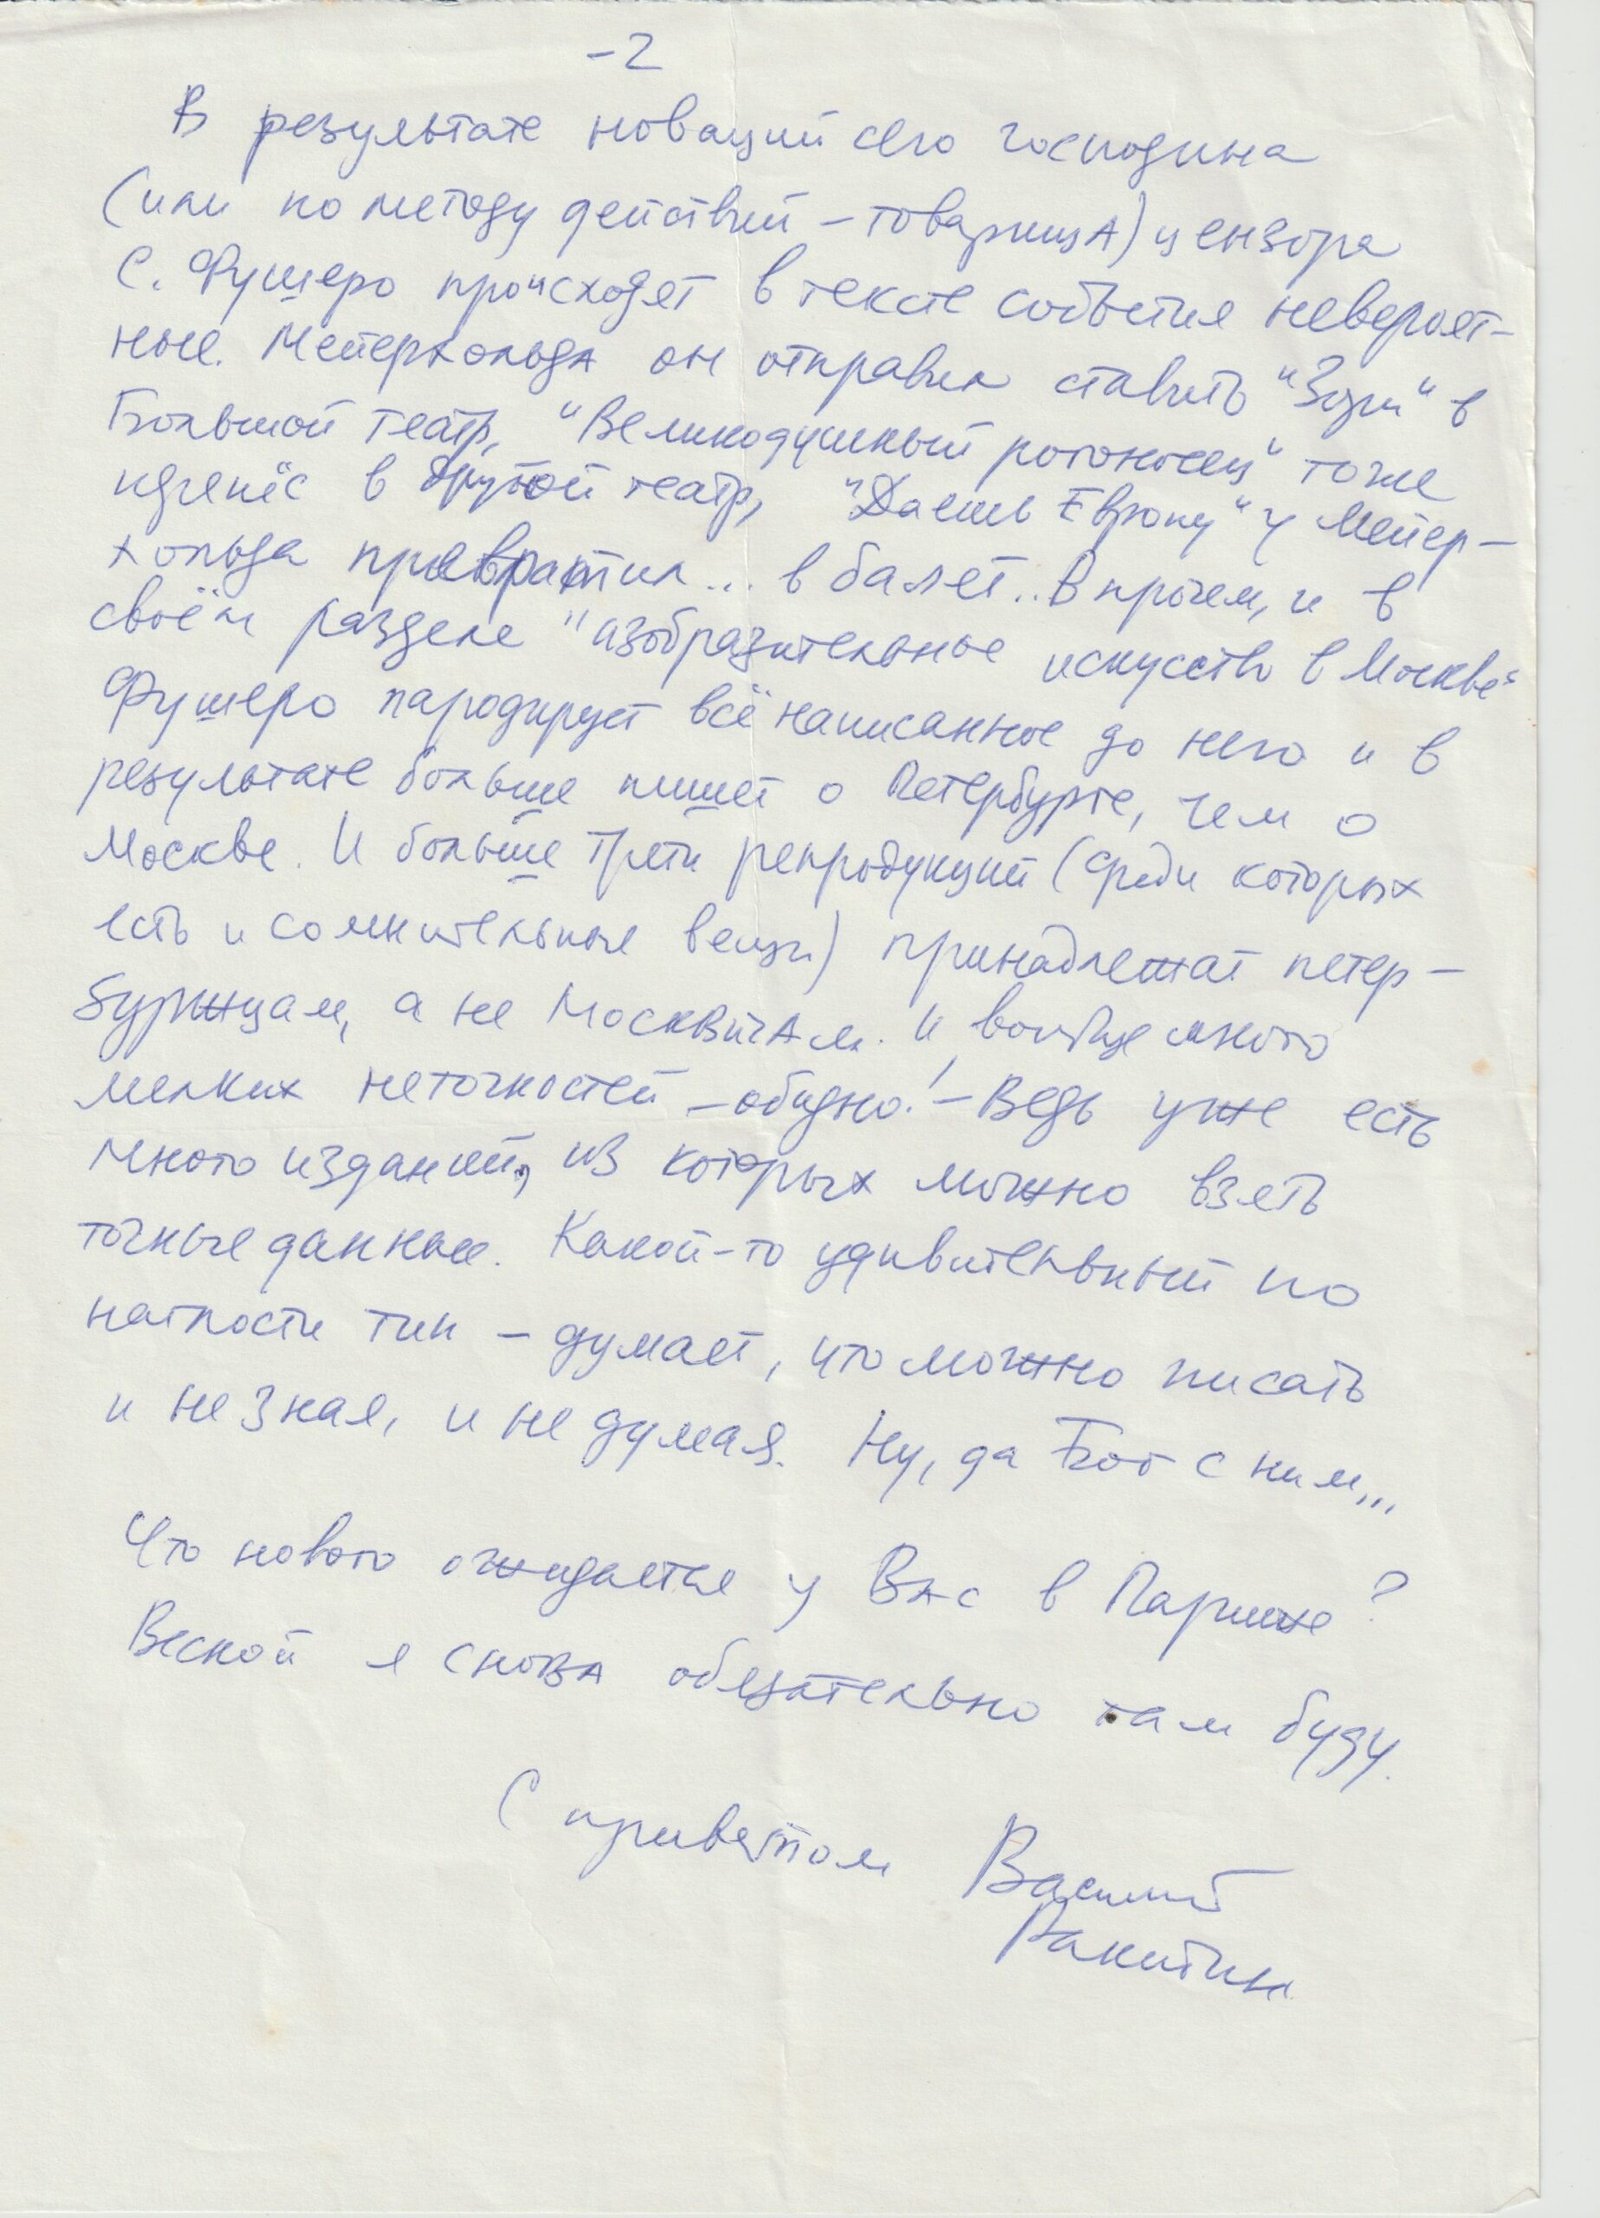 -2
В результате новаций сего господина
(или по методу действий – товарищА) цензора
С. Фушеро происходят в тексте события невероят-
ные. Мейерхольда он отправил ставить "Зори" в
Большой театр, "Великодушный рогоносец" тоже
в другой театр, "Даешь Европу" у Мейер-
хольда превратил... в балет.. Впрочем, и в
своём разделе "изобразительное искусство в Москве"
Фушеро пародирует всё написанное до него и в
результате больше пишет о Петербурге, чем о
Москве. И больше трети репродукций (среди которых
есть и сомнительные вещи) принадлежат петер-
буржцам, а не МосквичАм. И вообще много
мелких неточностей – обидно! – Ведь уже есть
много изданий, из которых можно взять
точные данные. Какой-то удивительный по
наглости тип – думает, что можно писать
и не зная, и не думая. Ну, да Бог с ним...
Что нового ожидается у Вас в Париже?
Весной я снова обязательно там буду.
С приветом Василий
Ракитин